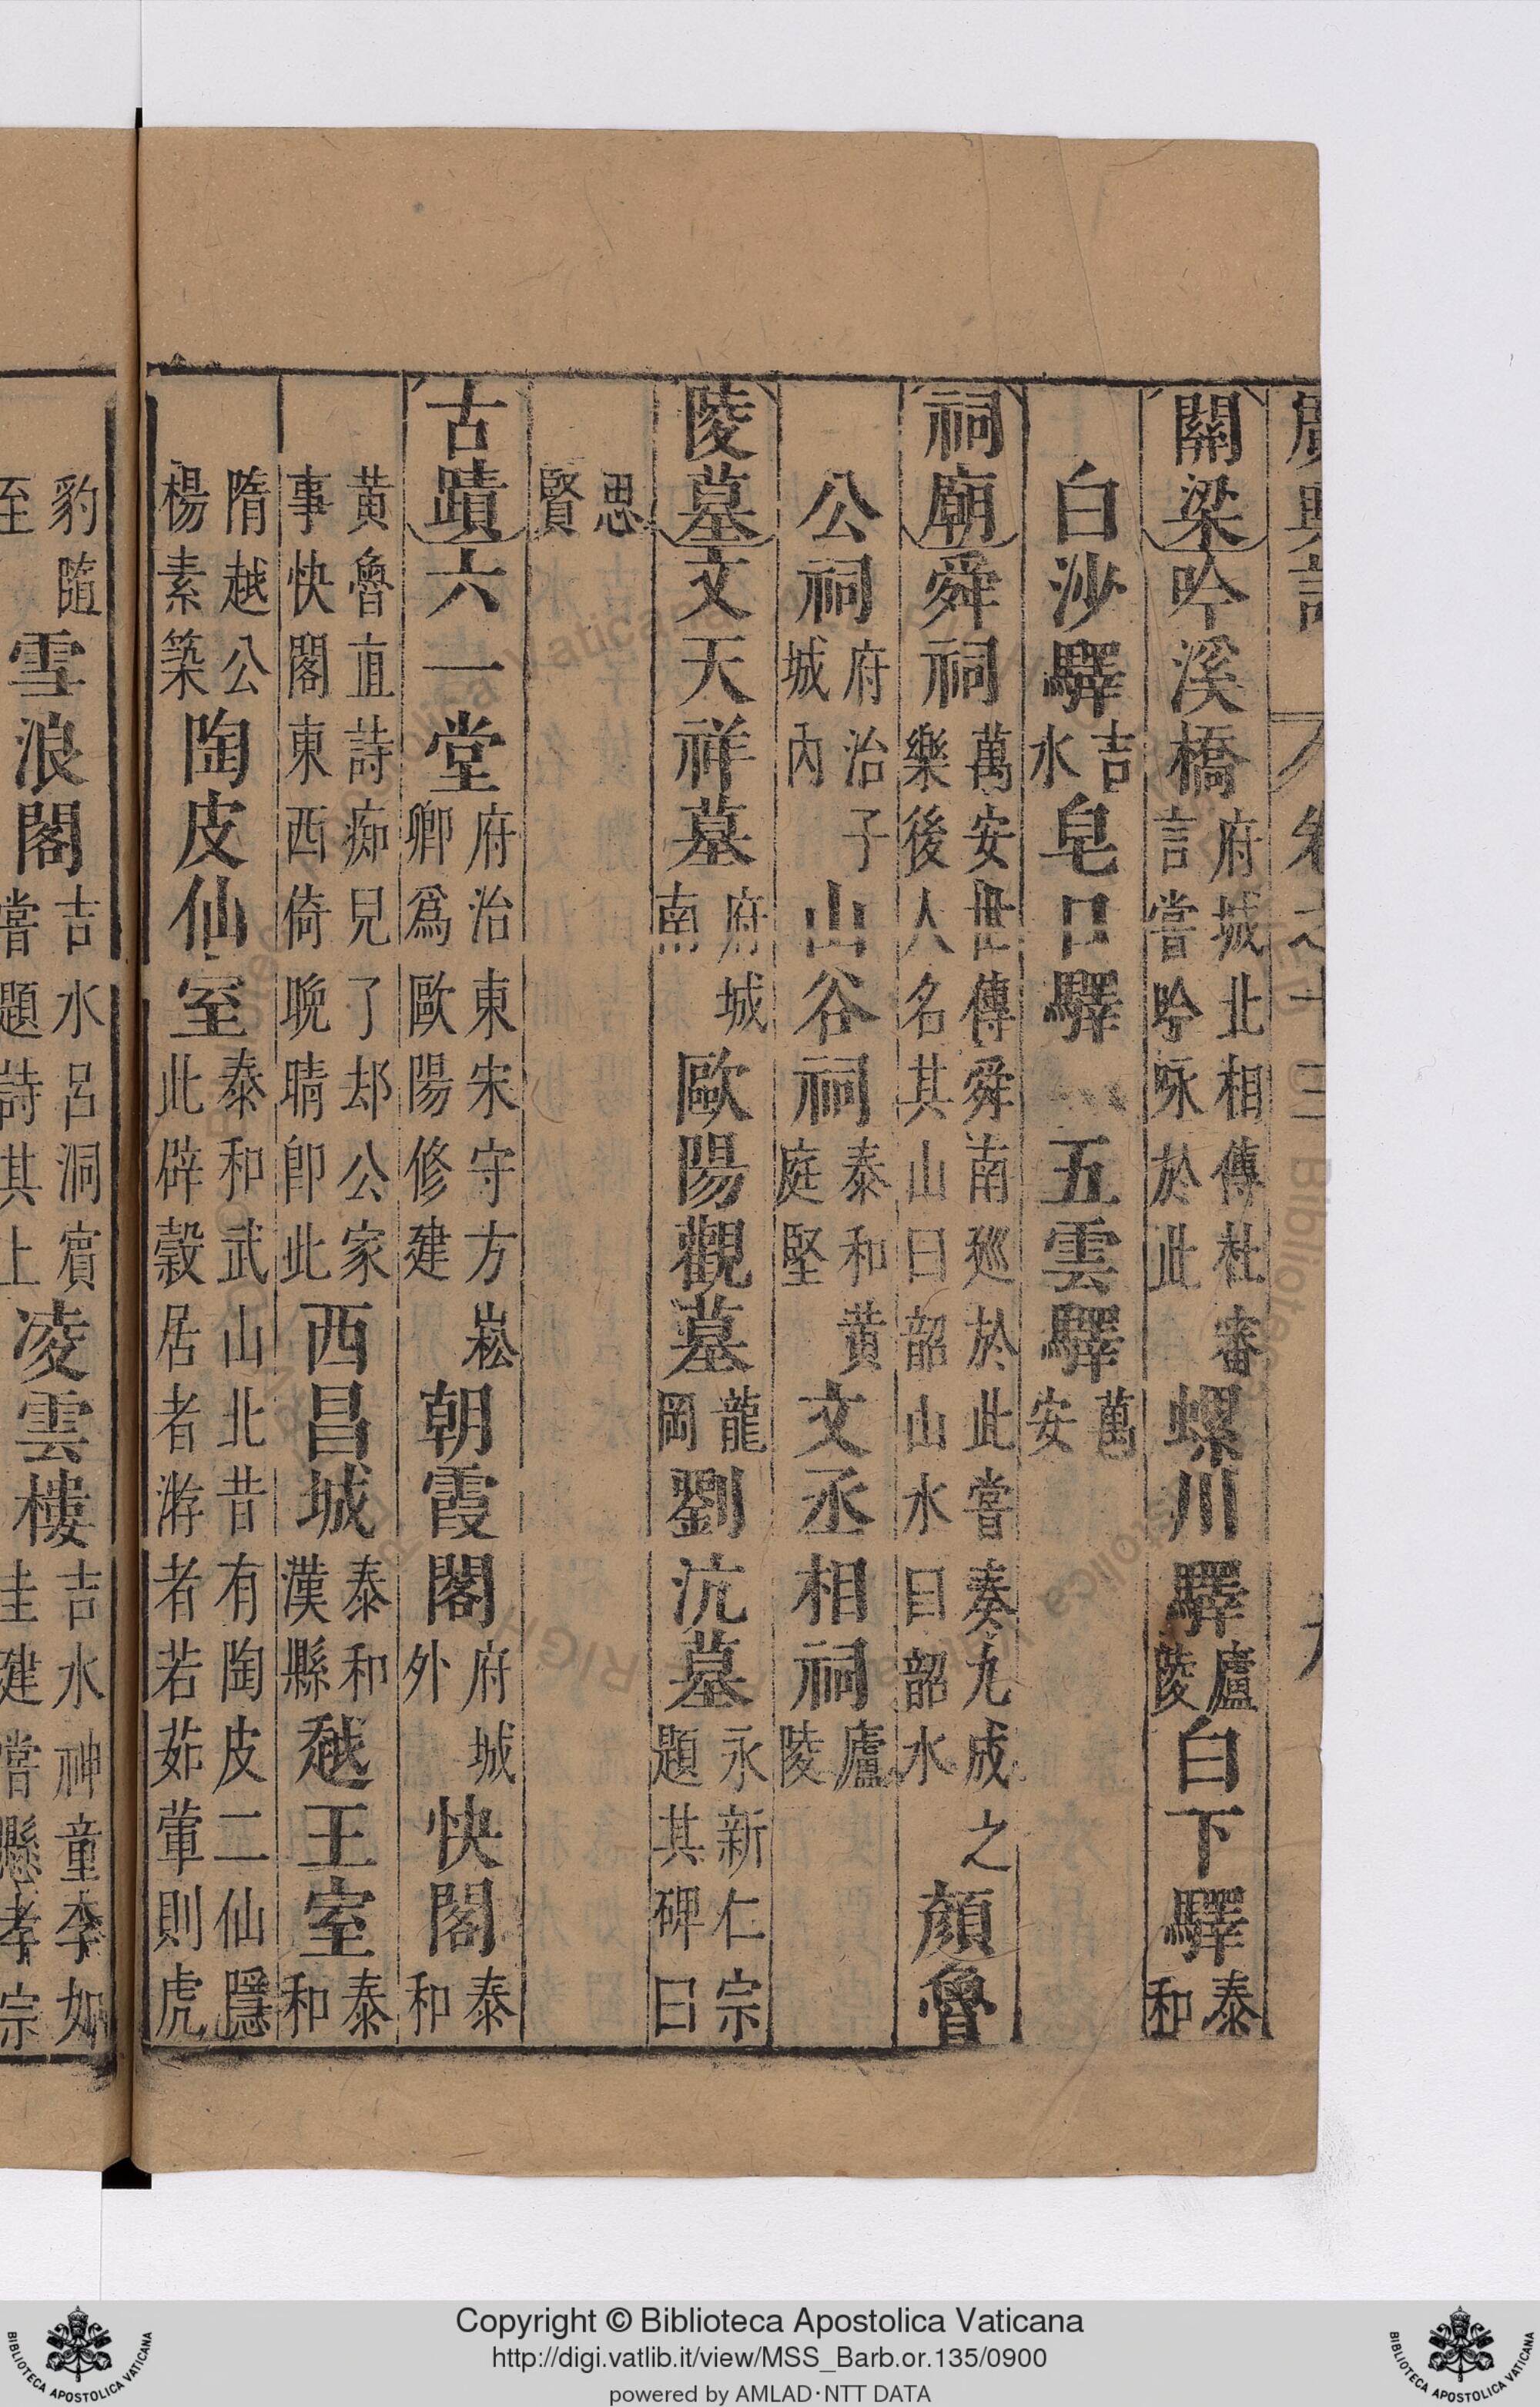 廣輿記 卷之十三 九
關梁吟溪橋府城北相傳杜審言嘗吟咏於此螺川驛廬陵白下驛泰和
白沙驛吉水皂口驛 五雲驛萬安
祠廟舜祠萬安世傳舜南廵於此嘗奏九成之樂後人名其山曰韶山水曰韶水顏魯
公祠府治子城內山谷祠泰和黄庭堅文丞相祠廬陵
陵墓文天祥墓府城南歐陽觀墓龍岡劉沆墓永新仁宗題其碑曰
思賢
古蹟六一堂府治東宋守方崧卿爲歐陽修建朝霞閣府城外快閣泰和
黄魯直詩痴兒了却公家事快閣東西倚晩晴卽此西昌城泰和漢縣越王室泰和
隋越公楊素築陶皮仙室泰和武山北昔有陶皮二仙隱此辟穀居者游者若茹葷則虎
豹隨至雪浪閣吉水呂洞賓嘗題詩其上凌雲樓吉水神童李如圭建嘗懸孝宗
Copyright © Biblioteca Apostolica Vaticana
http://digi.vatlib.it/view/MSS_Barb.or.135/0900
powered by AMLAD·NTT DATA
BIBLIOTECA APOSTOLICA VATICANA
BIBLIOTECA APOSTOLICA VATICANA